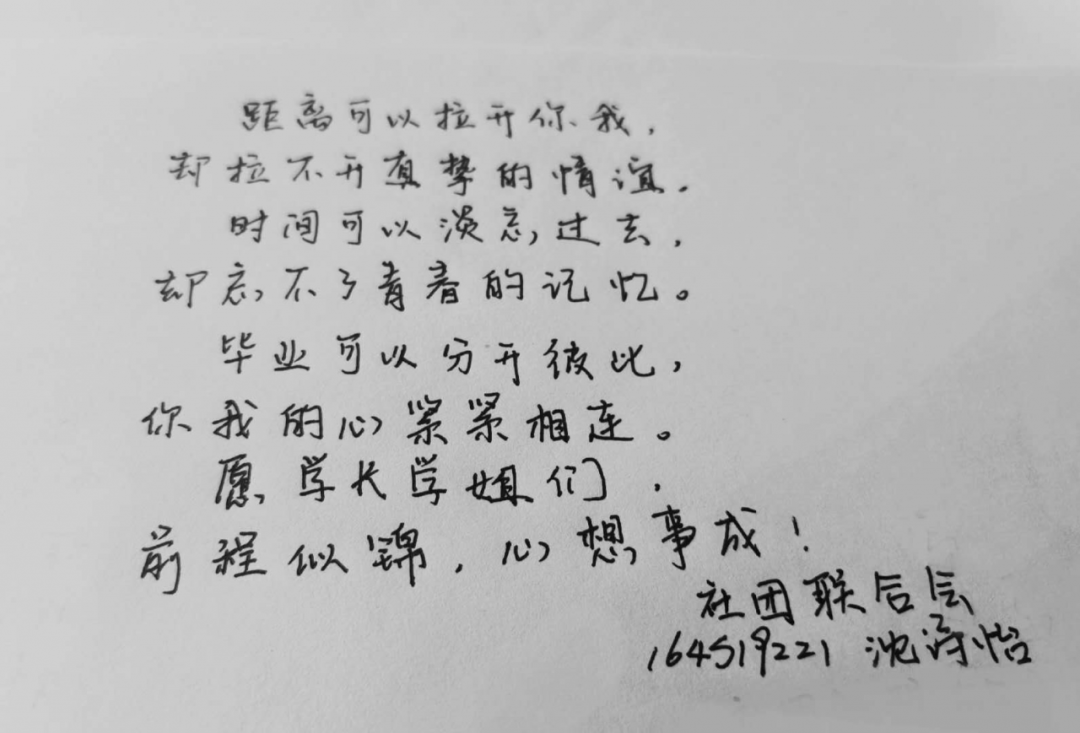 距离可以拉开你我，
却拉不开真挚的情谊．
时间可以淡忘过去，
却忘不了青春的记忆。
毕业可以分开彼此，
你我的心紧紧相连。
愿学长学姐们，
前程似锦，心想事成！
社团联合会
164519221 沈诗怡